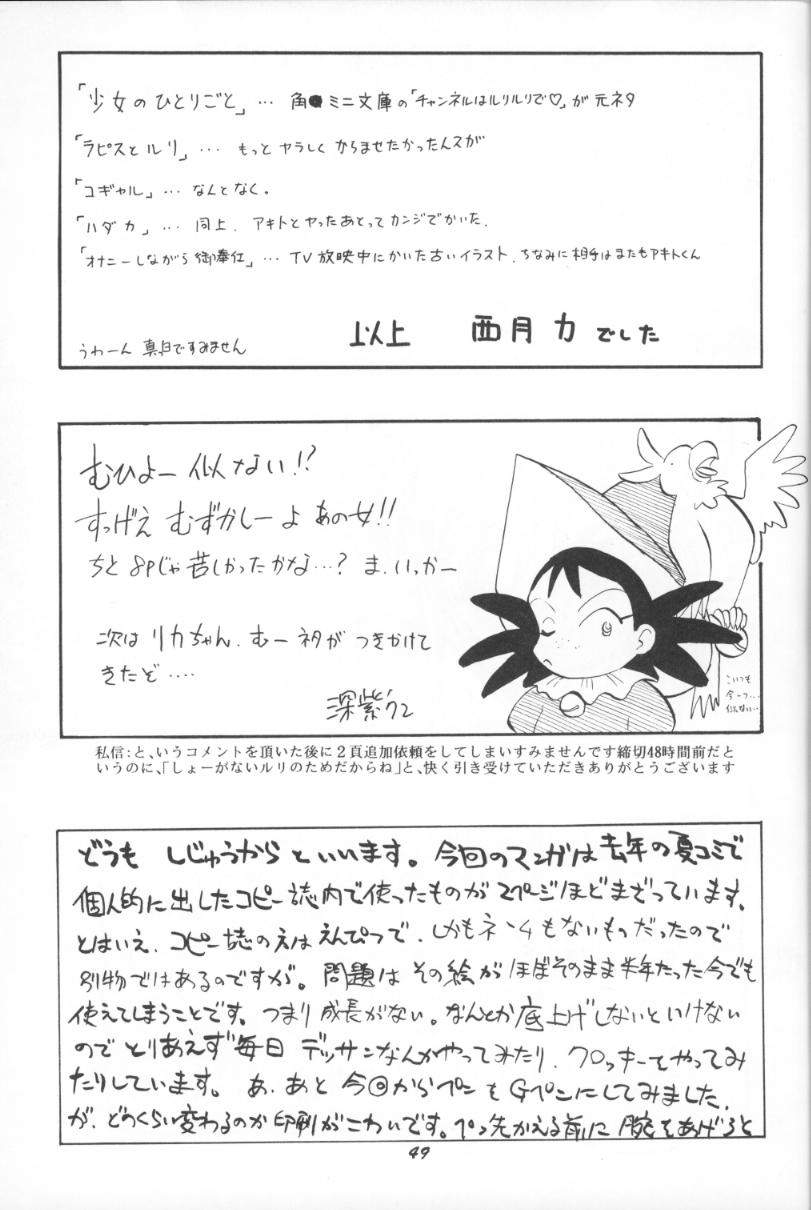 「少女のひとりごと」… 角●ミニ文庫の「チャンネルはルリルリで♡」が元ネタ
「ラピスとルリ」… もっとヤラしくからませたかったんスが
「コギャル」… なんとなく。
「ハダカ」… 同上、アキトとヤったあとってカンジでかいた。
「オナニーしながら御奉仕」… TV放映中にかいた古いイラスト、ちなみに相手はまたもアキトくん
以上 西月力でした
うわーん 真白ですみません
むひょー 似ない!?
すっげえ むずかしーよ あの女!!
ちと8Pじゃ苦しかったかな…? ま、いっかー
次は リカちゃん、むー ネタが つきかけて
きたぞ‥‥
深紫
こいつも
今一つ…
似ない…
私信:と、いうコメントを頂いた後に2頁追加依頼をしてしまいすみませんです締切48時間前だと
いうのに、「しょーがないルリのためだからね」と、快く引き受けていただきありがとうございます
どうも しじゅうから といいます。今回のマンガは去年の夏コミで
個人的に出したコピー誌内で使ったものが2ページほどまざっています。
とはいえ、コピー誌のえはえんぴつで、しかもネームもないものだったので
別物ではあるのですが。問題は その絵が ほぼそのまま半年たった今でも
使えてしまうことです。つまり成長がない。なんとか底上げしないといけない
ので とりあえず毎日 デッサンなんかやってみたり、クロッキーをやってみ
たりしています。あ、あと 今回からペンもGペンにしてみました
が、どのくらい変わるのか 印刷がこわいです。ペン先かえる前に 腕をあげろと
49